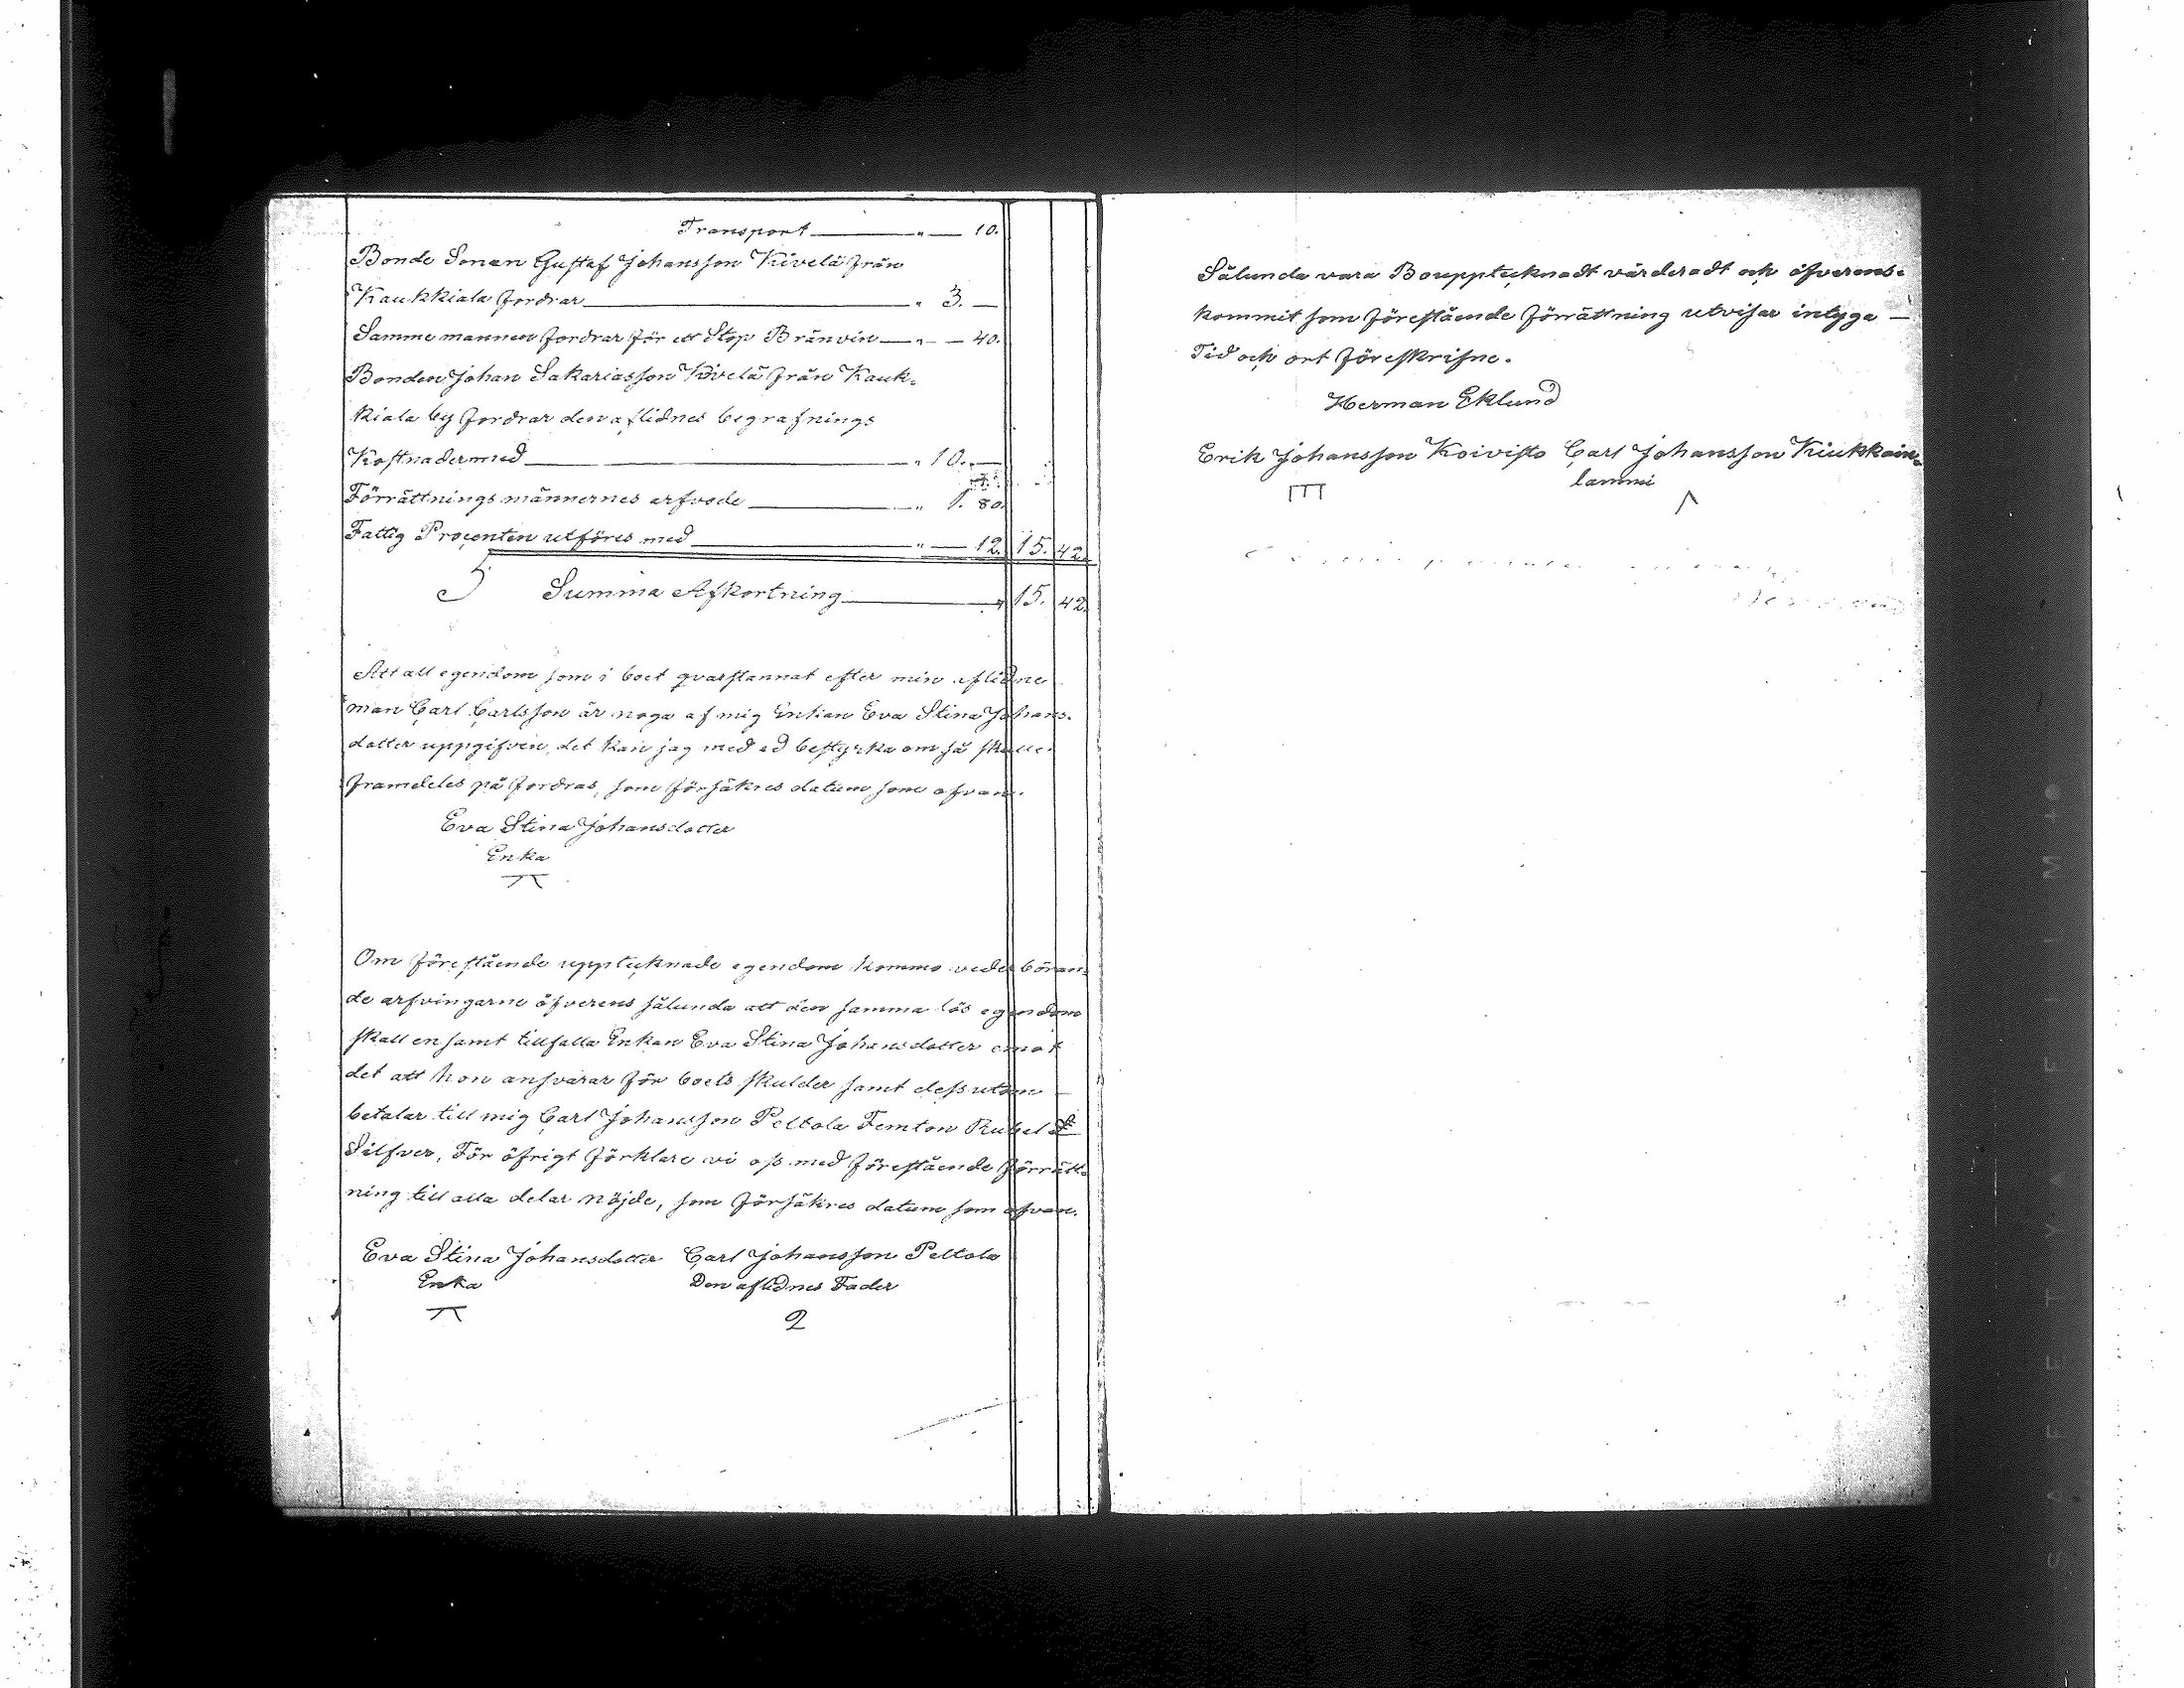 Transport " — 10.
Bonde Sonen Gustaf Johansson Kivelä från
Kaukkiala fordrar " 3. —
Samme mannen fordrar för ett Stop Bränvin " — 40.
Bonden Johan Sakariasson Kivelä från Kauk-
kiala by fordrar den aflidnes begrafnings
Kostnader med " 10. —
Förrättnings männernes arfvode " 1. 80.
Fattig Procenten utföres med " — 12. 15. 42.
Summa Afkortning " 15. 42.
Att all egendom som i boet qvarstannat efter min aflidne
man Carl Carlsson är noga af mig Enkan Eva Stina Johans-
dotter uppgifven, det kan jag med ed bestyrka om så skulle
framdeles på fordras, som försäkres datum som ofvan.
Eva Stina Johansdotter
Enka
Om förestående upptecknade egendom kommo vederböran-
de arfvingarne öfverens sålunda att den samma lös egendom
skall ensamt tillfalla Enkan Eva Stina Johansdotter emot
det att hon ansvarar för boets skulder samt dessutom —
betalar till mig Carl Johansson Peltola Femton Rubel
Silfver, För öfrigt förklare vi oss med förestående förrätt-
ning till alla delar nöjde, som försäkres datum som ofvan.
Eva Stina Johansdotter Carl Johansson Peltola
Enka Den aflidnes Fader
Sålunda vara Boupptecknadt värderadt och öfverens-
kommit som förestående förrättning utvisar intyga —
Tid och ort föreskrifne.
Herman Eklund
Erik Johansson Koivisto Carl Johansson Kiukkoin-
lammi
SAFETY FILM